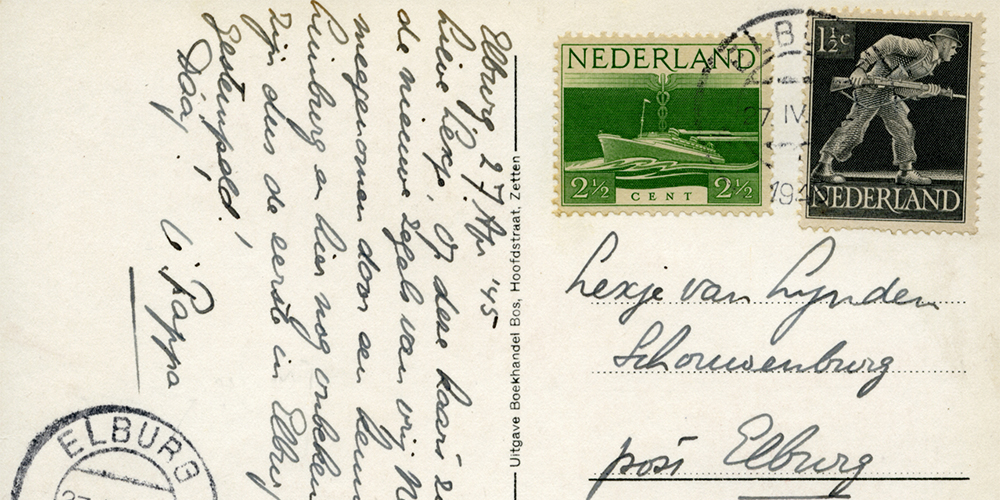 Elburg 27 Apr '45
Lieve Lexje, Op deze kaart
de nieuwe zegels van vrij
meegenomen door een
Limburg en hier nog onbeken
Zijn dus de eerste in Elbur
gestempeld!
Dáág,
Pappa
Uitgave Boekhandel Bos, Hoofdstraat, Zetten
NEDERLAND
2½ CENT 2½
1½ c
NEDERLAND
ELBU
27 IV
194
Lexje van Lynden
Schouwenburg
post Elburg
ELBURG
27